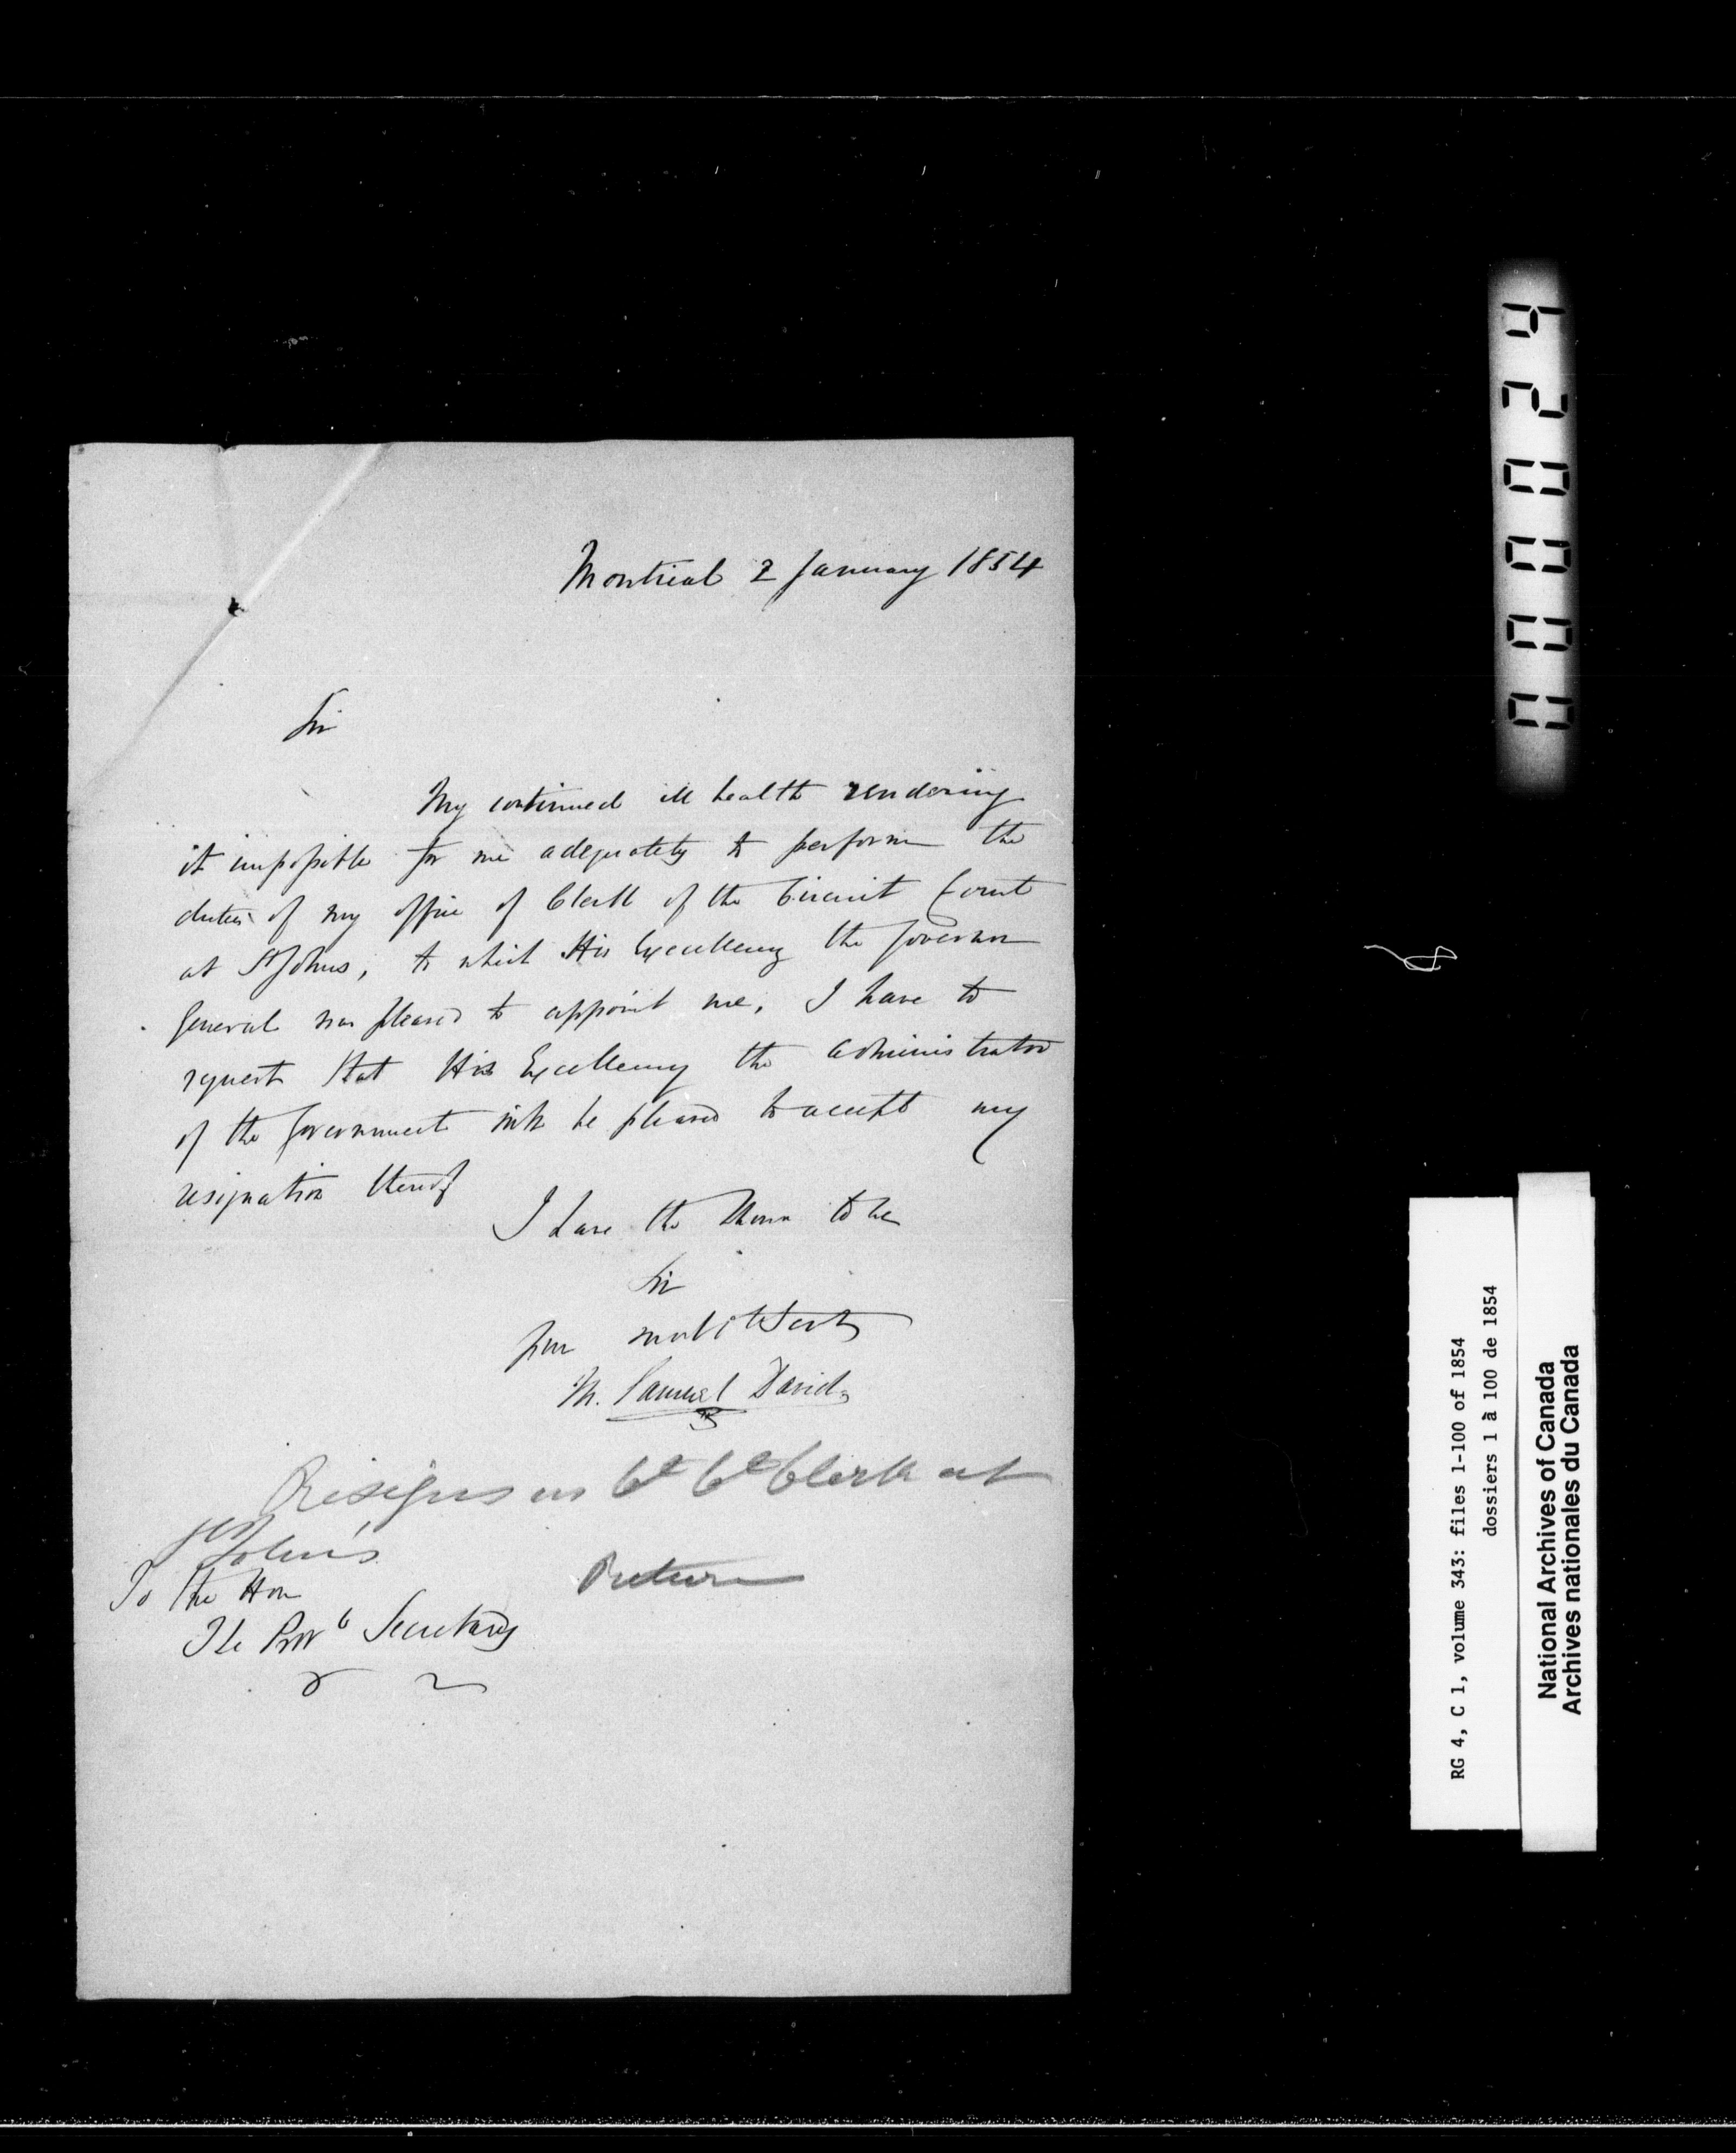 Montreal 2 January 1854
Sir
My continued ill health rendering
it impossible for me adequately to perform the
duties of my office of Clerk of the Circuit Court
at St Johns, to which His Excellency the Governor
General was pleased to appoint me, I have to
request that His Excellency the Administrator
of the Government will be pleased to accept my
resignation thereof
I have the Honor to be
Sir
Your
M. Samuel David
Resigns as Ct Ct Clerk at
St John's
Return
To the Hon
The Provl Secretary
000024
RG 4, C 1, volume 343: files 1-100 of 1854
dossiers 1 à 100 de 1854
National Archives of Canada
Archives nationales du Canada